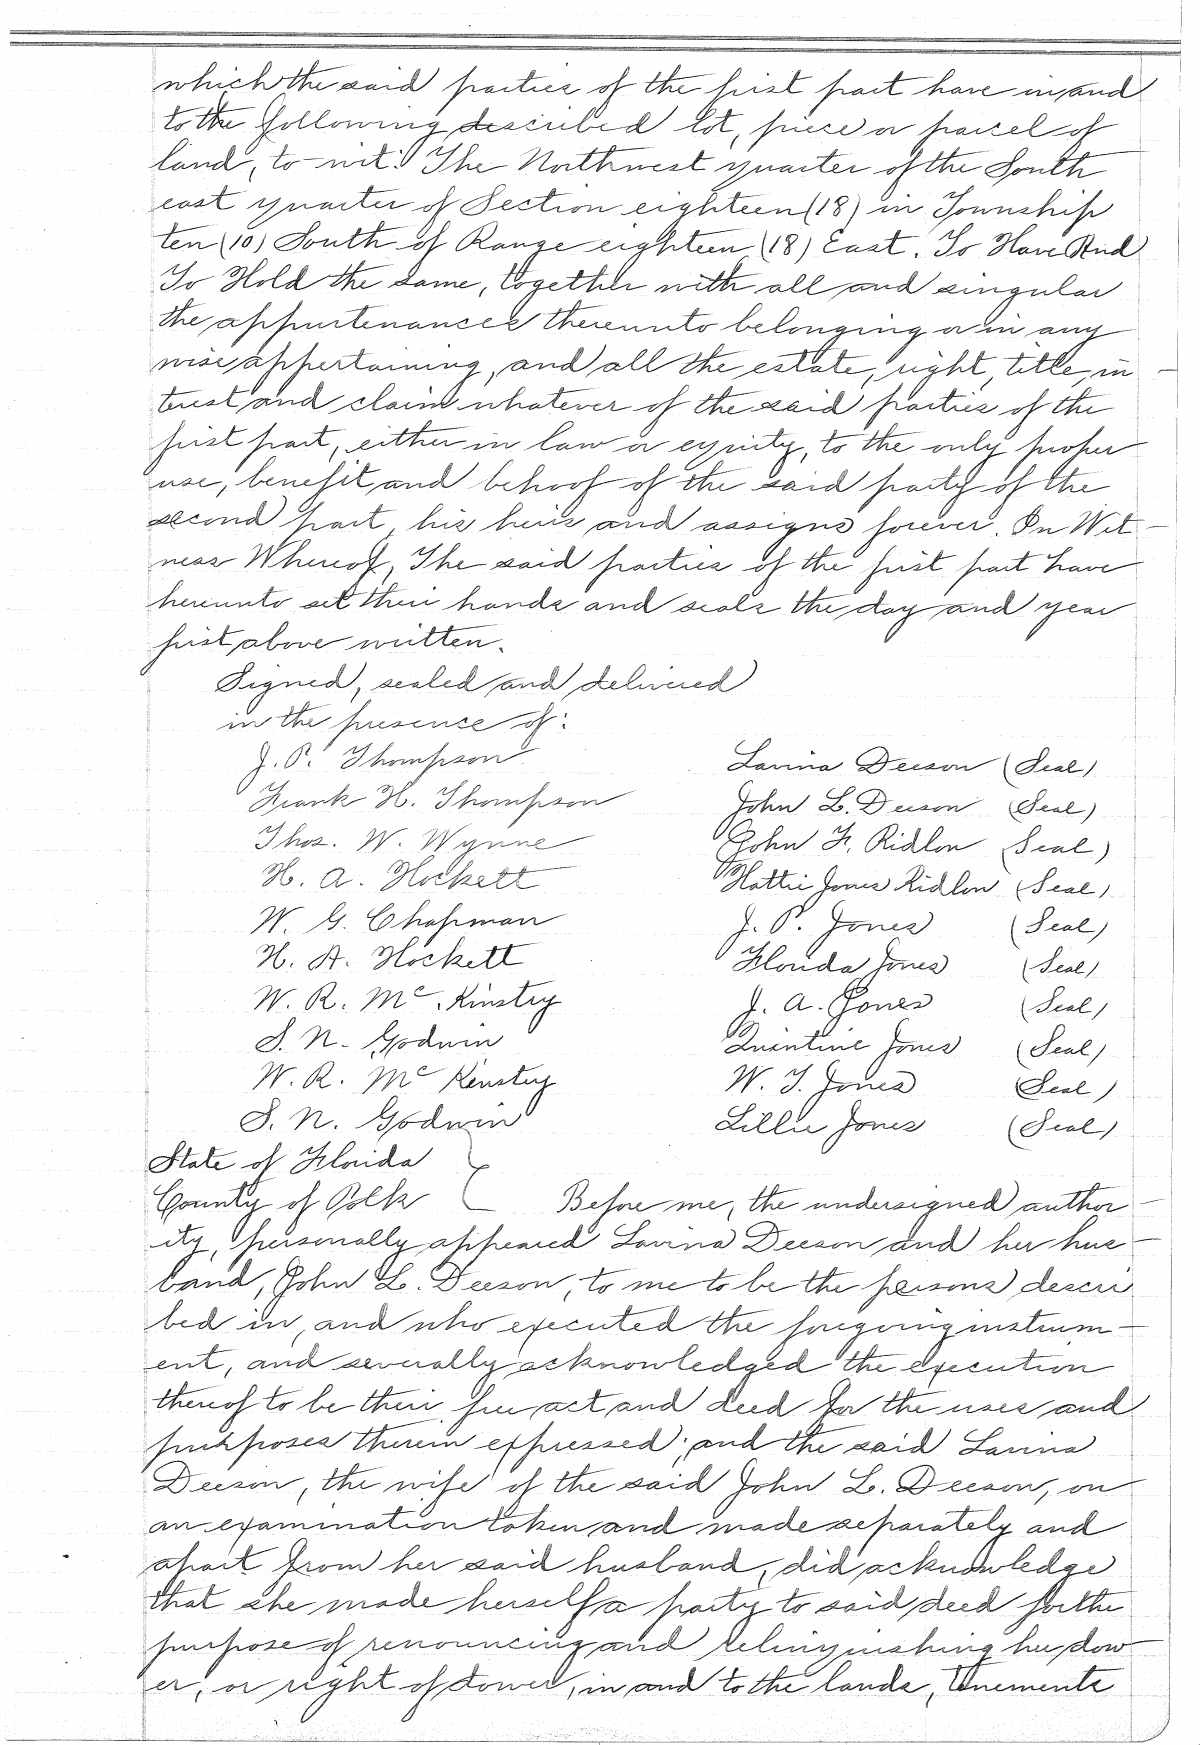 which the said parties of the first part have in and
to the following described lot, piece or parcel of
land, to-wit: The Northwest quarter of the South
east quarter of Section eighteen (18) in Township
ten (10) South of Range eighteen (18) East. To Have And
To Hold the same, together with all and singular
the appurtenances thereunto belonging or in any
wise appertaining, and all the estate, right, title, in-
terest and claim whatever of the said parties of the
first part, either in law or equity, to the only proper
use, benefit and behoof of the said party of the
second part, his heirs and assigns forever. In Wit-
ness Whereof, The said parties of the first part have
hereunto set their hands and seals the day and year
first above written.
Signed, sealed and delivered
in the presence of:
J. P. Thompson Lavina Deeson (Seal)
Frank H. Thompson John L. Deeson (Seal)
Thos. W. Wynne John F. Ridlon (Seal)
H. A. Hockett Hattie Jones Ridlon (Seal)
W. G. Chapman J. P. Jones (Seal)
H. A. Hockett Florida Jones (Seal)
W. R. Mc. Kinstry J. A. Jones (Seal)
S. N. Godwin Quintine Jones (Seal)
W. R. Mc Kinstry W. T. Jones (Seal)
S. N. Godwin Lillie Jones (Seal)
State of Florida
County of Polk Before me, the undersigned author-
ity, personally appeared Lavina Deeson and her hus-
band, John L. Deeson, to me to be the persons descri
bed in, and who executed the foregoing instrum-
ent, and severally acknowledged the execution
thereof to be their free act and deed for the uses and
purposes therein expressed; and the said Lavina
Deeson, the wife of the said John L. Deeson, on
an examination taken and made separately and
apart from her said husband, did acknowledge
that she made herself a party to said deed for the
purpose of renouncing and relinquishing her dow-
er, or right of dower, in and to the lands, tenements